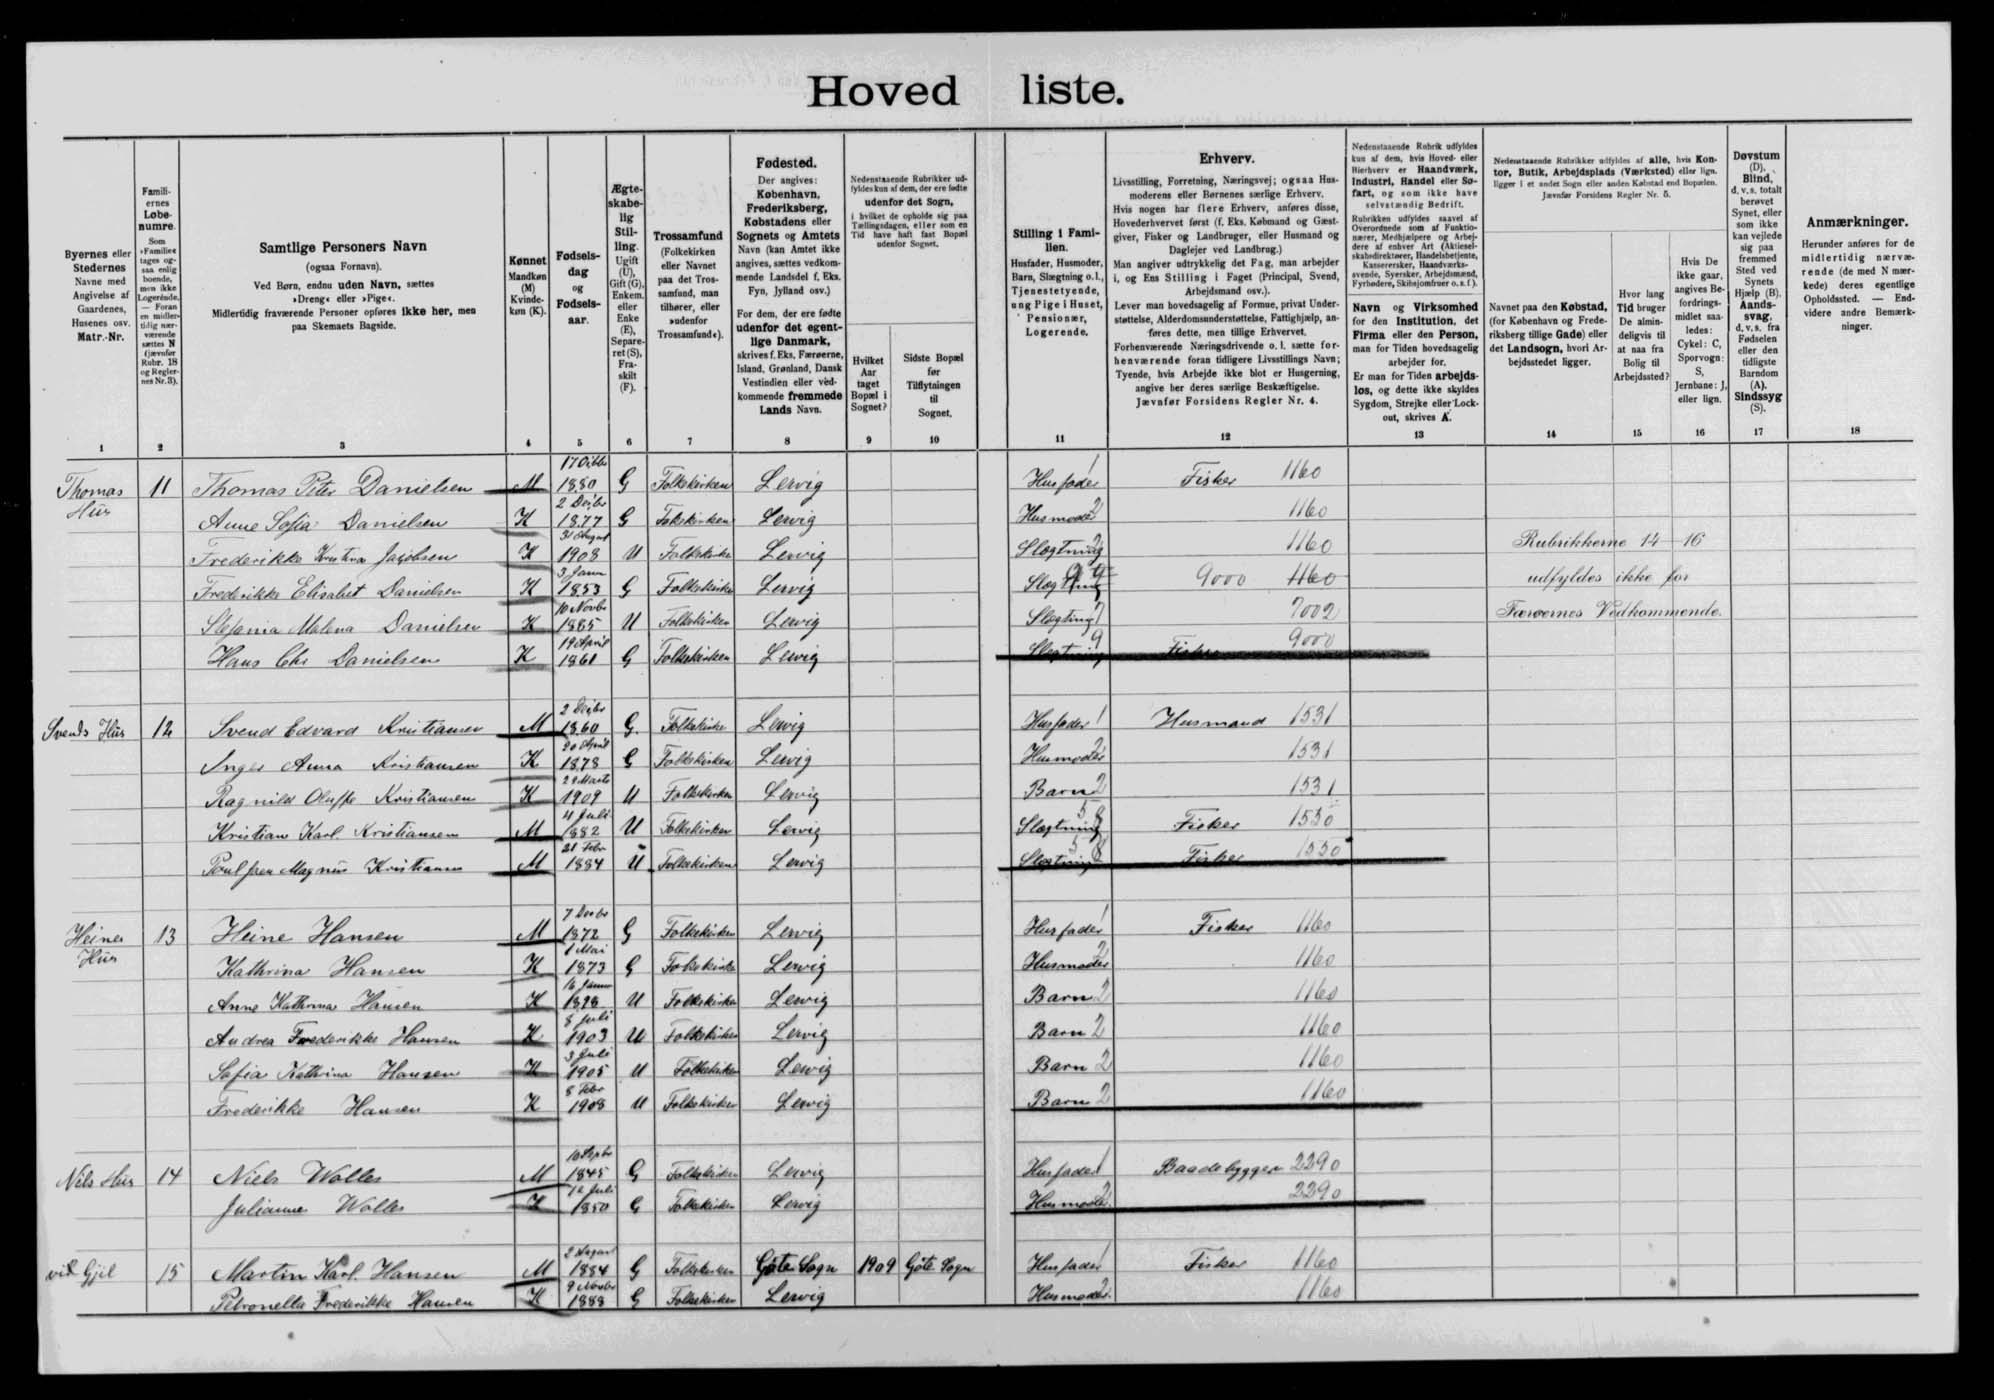 Hoved liste.
Byernes eller Stedernes Navne med Angivelse af Gaardenes, Husenes osv. Matr.-Nr.
Familiernes Løbenumre.
Samtlige Personers Navn
(ogsaa Fornavn).
Ved Børn, endnu uden Navn, sættes
»Dreng« eller »Pige«.
Midlertidig fraværende Personer opføres ikke her, men
paa Skemaets Bagside.
Kønnet
Mandkøn (M) Kvindekøn (K).
Fødselsdag og Fødselsaar.
Ægteskabelig Stilling.
Ugift (U), Gift (G), Enkem. eller Enke (E), Separeret (S), Fraskilt (F).
Trossamfund
(Folkekirken eller Navnet paa det Trossamfund, man tilhører, eller »udenfor Trossamfund«).
Fødested.
Der angives:
København, Frederiksberg, Købstadens eller Sognets og Amtets Navn (kan Amtet ikke angives, sættes vedkommende Landsdel f. Eks. Fyn, Jylland osv.)
For dem, der ere fødte udenfor det egentlige Danmark, skrives f. Eks. Færøerne, Island, Grønland, Dansk Vestindien eller vedkommende fremmede Lands Navn.
Nedenstaaende Rubrikker udfyldes kun af dem, der ere fødte udenfor det Sogn, i hvilket de opholde sig paa Tællingsdagen, eller som en Tid have haft fast Bopæl udenfor Sognet.
Hvilket Aar taget Bopæl i Sognet?
Sidste Bopæl før Tilflytningen til Sognet.
Stilling i Familien.
Husfader, Husmoder, Barn, Slægtning o. l., Tjenestetyende, ung Pige i Huset, Pensionær, Logerende.
Erhverv.
Livsstilling, Forretning, Næringsvej; ogsaa Husmoderens eller Børnenes særlige Erhverv.
Hvis nogen har flere Erhverv, anføres disse, Hovederhvervet først (f. Eks. Købmand og Gæstgiver, Fisker og Landbruger, eller Husmand og Daglejer ved Landbrug.)
Man angiver udtrykkelig det Fag, man arbejder i, og Ens Stilling i Faget (Principal, Svend, Arbejdsmand osv.).
Lever man hovedsagelig af Formue, privat Understøttelse, Alderdomsunderstøttelse, Fattighjælp, anføres dette, men tillige Erhvervet.
Forhenværende Næringsdrivende o. l. sætte forhenværende foran tidligere Livsstillings Navn; Tyende, hvis Arbejde ikke blot er Husgerning, angive her deres særlige Beskæftigelse.
Jævnfør Forsidens Regler Nr. 4.
Nedenstaaende Rubrik udfyldes kun af dem, hvis Hoved- eller Bierhverv er Haandværk, Industri, Handel eller Søfart, og som ikke have selvstændig Bedrift.
Rubrikken udfyldes saavel af Overordnede som af Funktionærer, Medhjælpere og Arbejdere af enhver Art (Aktieselskabsdirektører, Handelsbetjente, Kasserersker, Haandværkssvende, Syersker, Arbejdsmænd, Fyrbødere, Skibsjomfruer o. s. f.).
Navn og Virksomhed for den Institution, det Firma eller den Person, man for Tiden hovedsagelig arbejder for.
Er man for Tiden arbejdsløs, og dette ikke skyldes Sygdom, Strejke eller Lockout, skrives A.
Nedenstaaende Rubrikker udfyldes af alle, hvis Kontor, Butik, Arbejdsplads (Værksted) eller lign. ligger i et andet Sogn eller anden Købstad end Bopælen.
Jævnfør Forsidens Regler Nr. 5.
Navnet paa den Købstad, (for København og Frederiksberg tillige Gade) eller det Landsogn, hvori Arbejdsstedet ligger.
Hvor lang Tid bruger De almindeligvis til at naa fra Bolig til Arbejdssted?
Hvis De ikke gaar, angives Befordringsmidlet saaledes: Cykel: C, Sporvogn: S, Jernbane: J, eller lign.
Døvstum (D), Blind, d. v. s. totalt berøvet Synet, eller som ikke kan vejlede sig paa fremmed Sted ved Synets Hjælp (B). Aandssvag, d. v. s. fra Fødselen eller den tidligste Barndom (A). Sindssyg (S).
Anmærkninger.
Herunder anføres for de midlertidig nærværende (de med N mærkede) deres egentlige Opholdssted. — Endvidere andre Bemærkninger.
1 2 3 4 5 6 7 8 9 10 11 12 13 14 15 16 17 18
Thomas Hus 11 Thomas Peter Danielsen M 1880 G Folkekirken Lervig Husfader 1 Fisker 1160
Anne Sofia Danielsen K 1877 G Folkekirken Lervig Husmoder 2 1160
Frederikke Kristina Jacobsen K 31 August 1908 U Folkekirke Lervig Slægtning 2 1160 Rubrikkerne 14-16
Frederikke Elisabet Danielsen K 3 Janu 1853 G Folkekirke Lervig Slægtning 9 9000 1160 udfyldes ikke for
Stefania Malena Danielsen K 10 Novbr 1885 U Folkekirken Lervig Slægtning 7002 Færøernes Vedkommende.
Hans Chr Danielsen K 19 April 1861 G Folkekirken Lervig Slægtning 9 Fisker 9000
Svends Hus 12 Svend Edvard Kristiansen M 1860 G. Folkekirke Lervig Husfader 1 Husmand 1531
Inger Anna Kristiansen K 20 April 1878 G Folkekirken Lervig Husmoder 2 1531
Ragnild Oluffa Kristiansen K 1909 U Folkekirken Lervig Barn 2 1531
Kristian Karl Kristiansen M 4 Juli 1882 U Folkekirken Lervig Slægtning 58 Fisker 1550
Poul Magnus Kristiansen M 21 Febr 1884 U Folkekirken Lervig Slægtning 58 Fisker 1550
Heines Hus 13 Heine Hansen M 1872 G Folkekirken Lervig Husfader 1 Fisker 1160
Kathrina Hansen K 1 Mai 1873 G Folkekirke Lervig Husmoder 2 1160
Anne Kathrina Hansen K 1898 U Folkekirken Lervig Barn 2 1160
Andrea Frederikke Hansen K 8 Juli 1903 U Folkekirken Lervig Barn 2 1160
Sofia Kathrina Hansen K 3 Juli 1905 U Folkekirken Lervig Barn 2 1160
Frederikke Hansen K 8 Febr 1908 U Folkekirken Lervig Barn 2 1160
Nils Hus 14 Niels Wolles M 10 Septbr 1845 G Folkekirken Lervig Husfader 1 Baadebygger 2290
Julianne Wolles K 12 Juli 1850 G Folkekirken Lervig Husmoder 2 2290
við Gjil 15 Martin Karl Hansen M 2 August 1884 G Folkekirken Göte Sogn 1909 Göte Sogn Husfader 1 Fisker 1160
Petronella Frederikke Hansen K 9 Novbr 1888 G Folkekirken Lervig Husmoder 2 1160